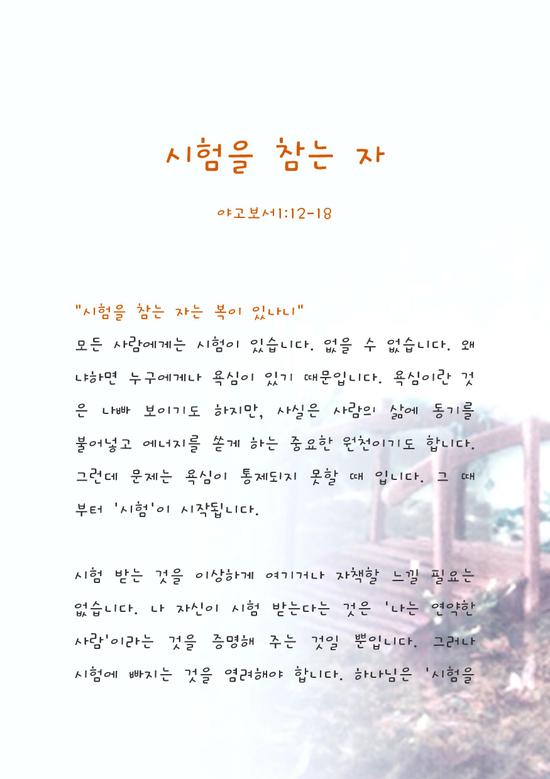 시험을 참는 자
야고보서1:12-18
"시험을 참는 자는 복이 있나니"
모든 사람에게는 시험이 있습니다. 없을 수 없습니다. 왜
냐하면 누구에게나 욕심이 있기 때문입니다. 욕심이란 것
은 나빠 보이기도 하지만, 사실은 사람의 삶에 동기를
불어넣고 에너지를 쏟게 하는 중요한 원천이기도 합니다.
그런데 문제는 욕심이 통제되지 못할 때 입니다. 그 때
부터 '시험'이 시작됩니다.
시험 받는 것을 이상하게 여기거나 자책할 느낄 필요는
없습니다. 나 자신이 시험 받는다는 것은 '나는 연약한
사람'이라는 것을 증명해 주는 것일 뿐입니다. 그러나
시험에 빠지는 것을 염려해야 합니다. 하나님은 '시험을